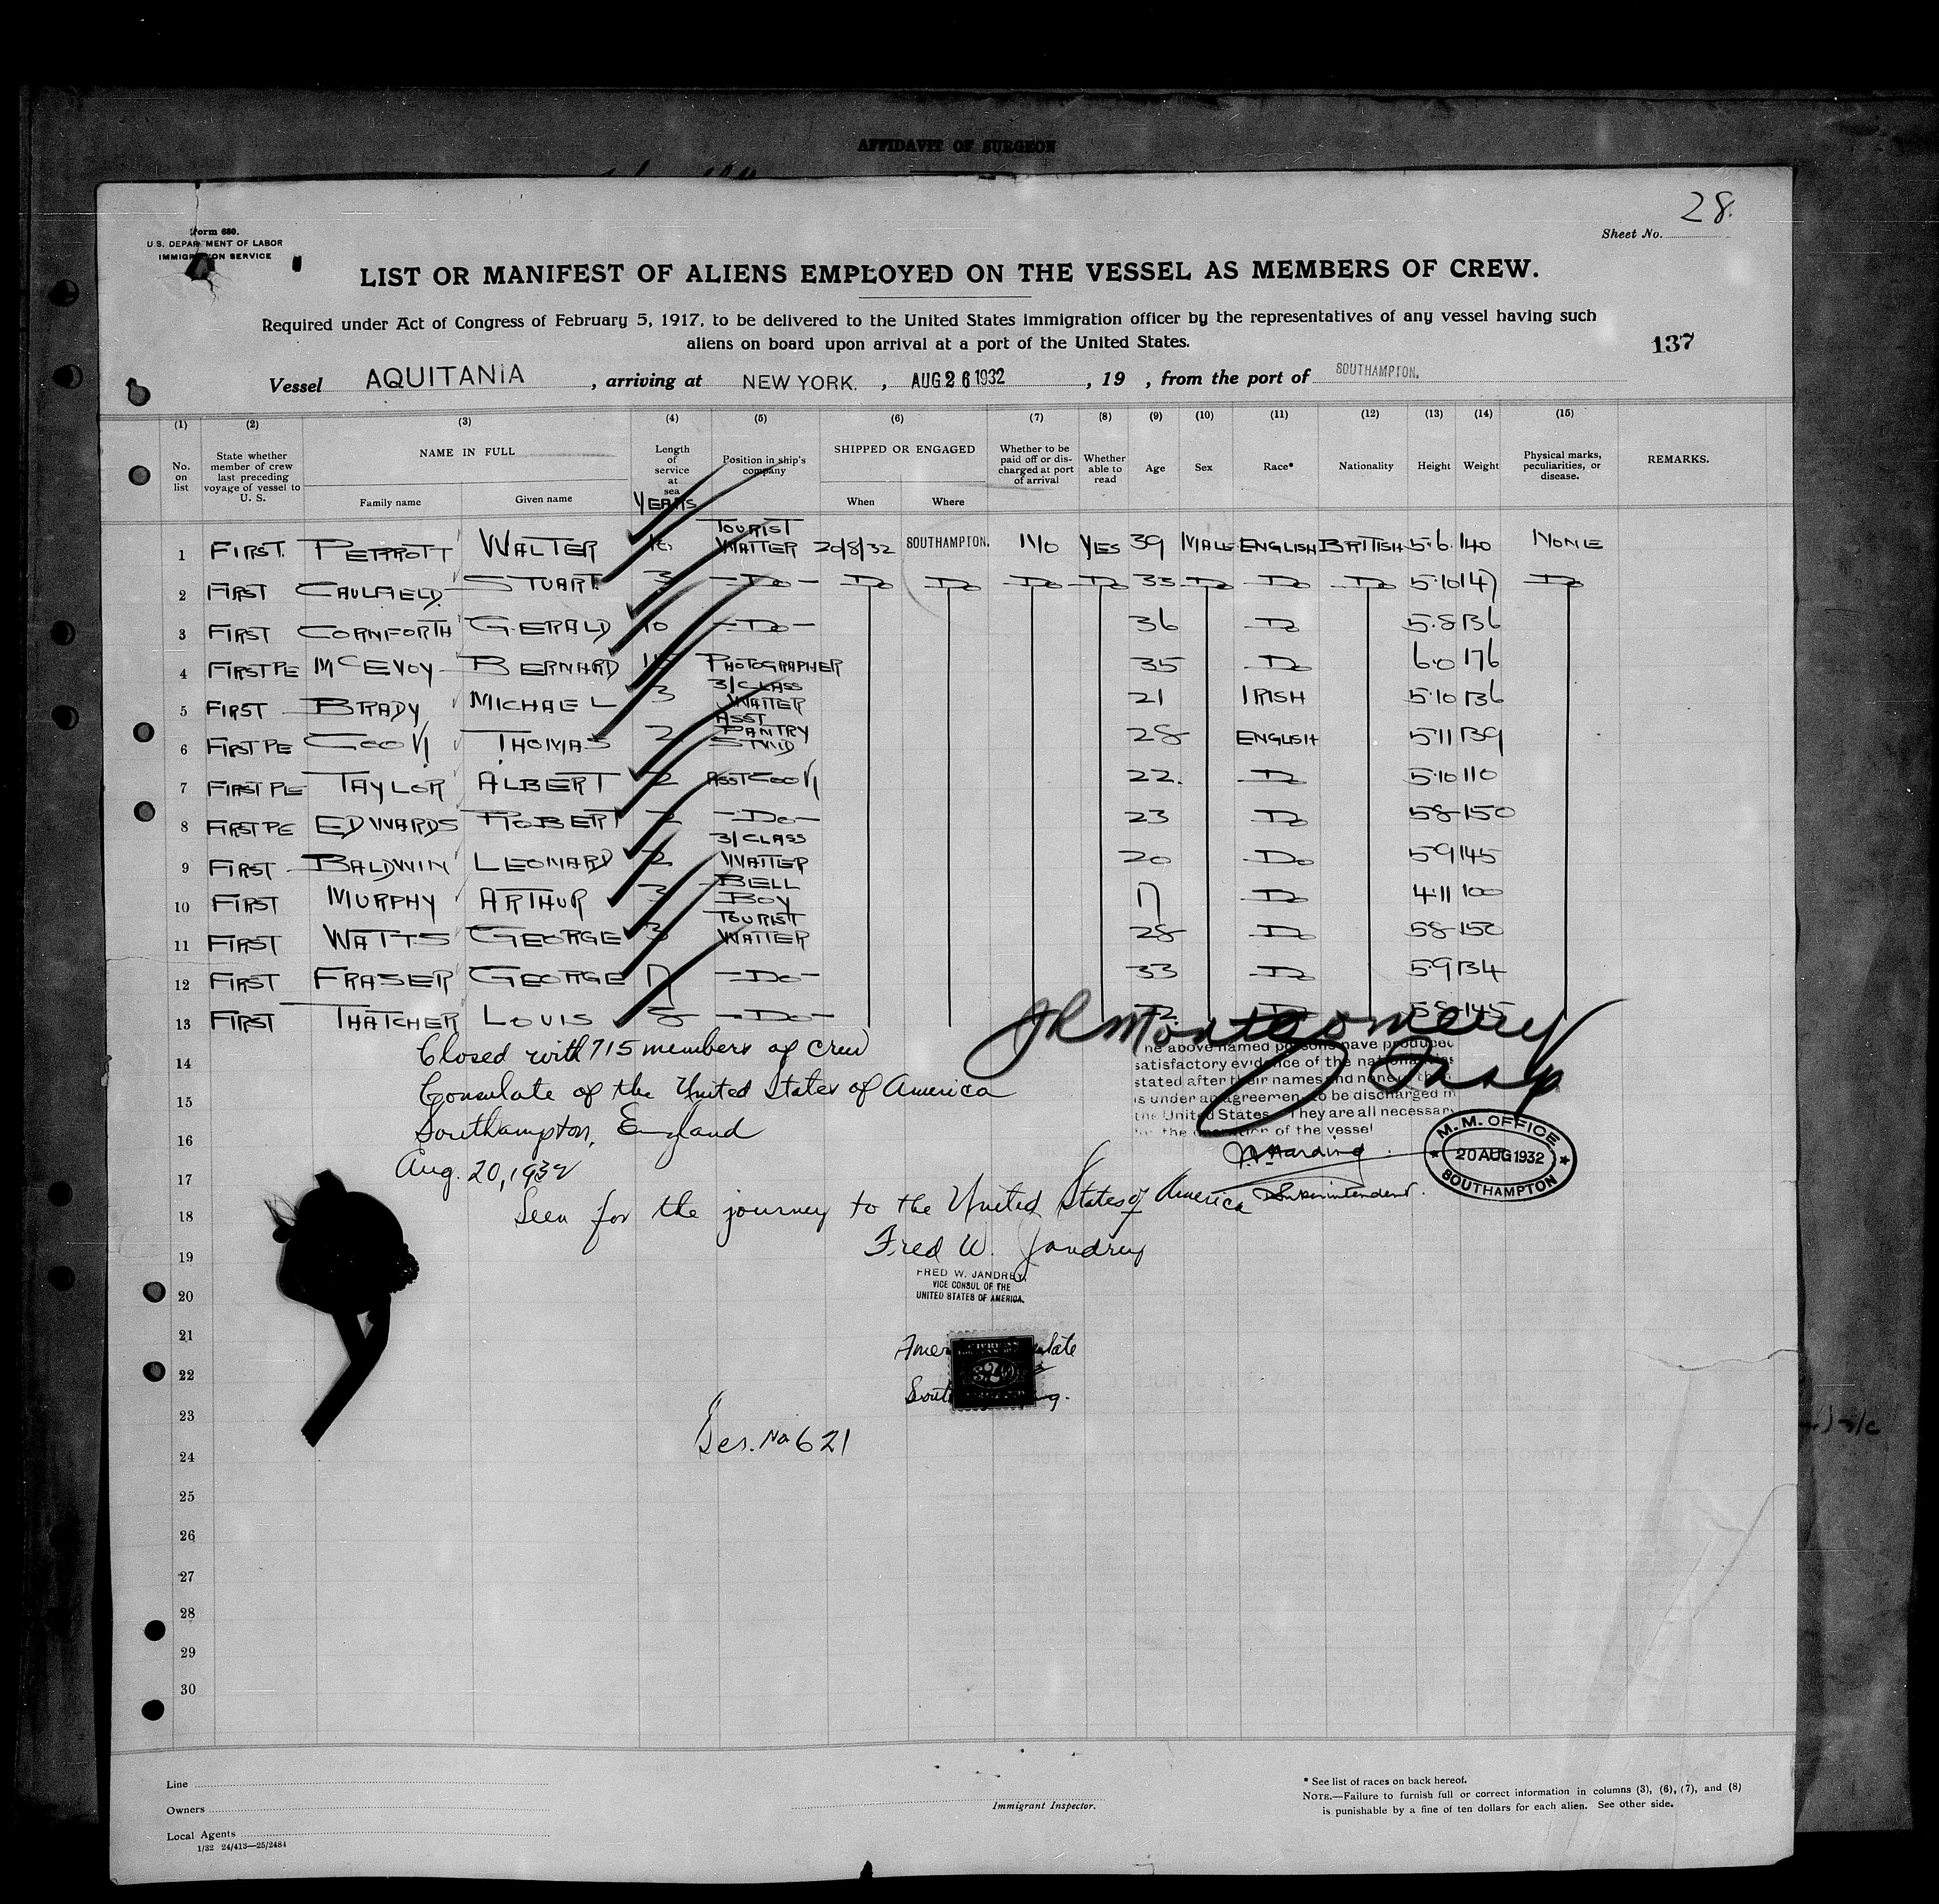 AFFIDAVIT OF SURGEON
28.
Form 680.
U.S. DEPARTMENT OF LABOR
IMMIGRATION SERVICE
Sheet No.
LIST OR MANIFEST OF ALIENS EMPLOYED ON THE VESSEL AS MEMBERS OF CREW.
Required under Act of Congress of February 5, 1917, to be delivered to the United States immigration officer by the representatives of any vessel having such
aliens on board upon arrival at a port of the United States.
137
Vessel AQUITANIA , arriving at NEW YORK. , AUG 26 1932 , 19 , from the port of SOUTHAMPTON.
(1) (2) (3) (4) (5) (6) (7) (8) (9) (10) (11) (12) (13) (14) (15)
No. on list State whether member of crew last preceding voyage of vessel to U. S. NAME IN FULL Family name Given name Length of service at sea YEARS Position in ship's company SHIPPED OR ENGAGED When Where Whether to be paid off or discharged at port of arrival Whether able to read Age Sex Race* Nationality Height Weight Physical marks, peculiarities, or disease. REMARKS.
1 FIRST. PERROTT WALTER TOURIST WAITER 20/8/32 SOUTHAMPTON. NO YES 39 MALE ENGLISH BRITISH 5.6. 140 NONE
2 FIRST CAULFIELD STUART 3 -DO- DO DO DO DO 33 DO DO DO 5.10 147 DO
3 FIRST CORNFORTH GERALD 10 -DO- 36 DO 5.8 136
4 FIRST PE McEVOY BERNARD PHOTOGRAPHER 35 DO 6.0 176
5 FIRST BRADY MICHAEL 3 3/CLASS WAITER 21 IRISH 5.10 136
6 FIRST PE COOK THOMAS 2 ASST PANTRY STWD 28 ENGLISH 5.11 139
7 FIRST PE TAYLOR ALBERT 2 ASST COOK 22. DO 5.10 110
8 FIRST PE EDWARDS ROBERT 2 -DO- 23 DO 5.8 150
9 FIRST BALDWIN LEONARD 2 3/CLASS WAITER 20 DO 5.9 145
10 FIRST MURPHY ARTHUR 3 BELL BOY 17 DO 4.11 100
11 FIRST WATTS GEORGE 3 TOURIST WAITER 28 DO 5.8 150
12 FIRST FRASER GEORGE 17 -DO- 33 DO 5.9 134
13 FIRST THATCHER LOUIS 8 -DO- DO 5.8 145
JR Montgomery
Insp
14 Closed with 715 members of crew
15 Consulate of the United States of America
16 Southampton, England
17 Aug. 20, 1932
The above named persons have produced
satisfactory evidence of the nationalities
stated after their names and none of them
is under an agreement to be discharged in
the United States. They are all necessary
for the operation of the vessel
Harding
Superintendent.
M.M. OFFICE
20 AUG 1932
SOUTHAMPTON
18 Seen for the journey to the United States of America
19 Fred W. Jandrey
FRED W. JANDREY,
20 VICE CONSUL OF THE
UNITED STATES OF AMERICA.
21
22
23
24 Ser. No 621
25
26
27
28
29
30
Line
Owners
Local Agents
1/32 24/413—25/2484
Immigrant Inspector.
* See list of races on back hereof.
NOTE.—Failure to furnish full or correct information in columns (3), (6), (7), and (8)
is punishable by a fine of ten dollars for each alien. See other side.